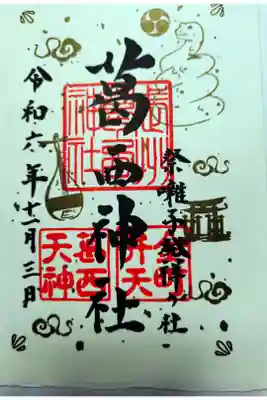 祭り囃子発祥ノ社
葛西神社
令和六年十一月三日
弁天
葛西天神